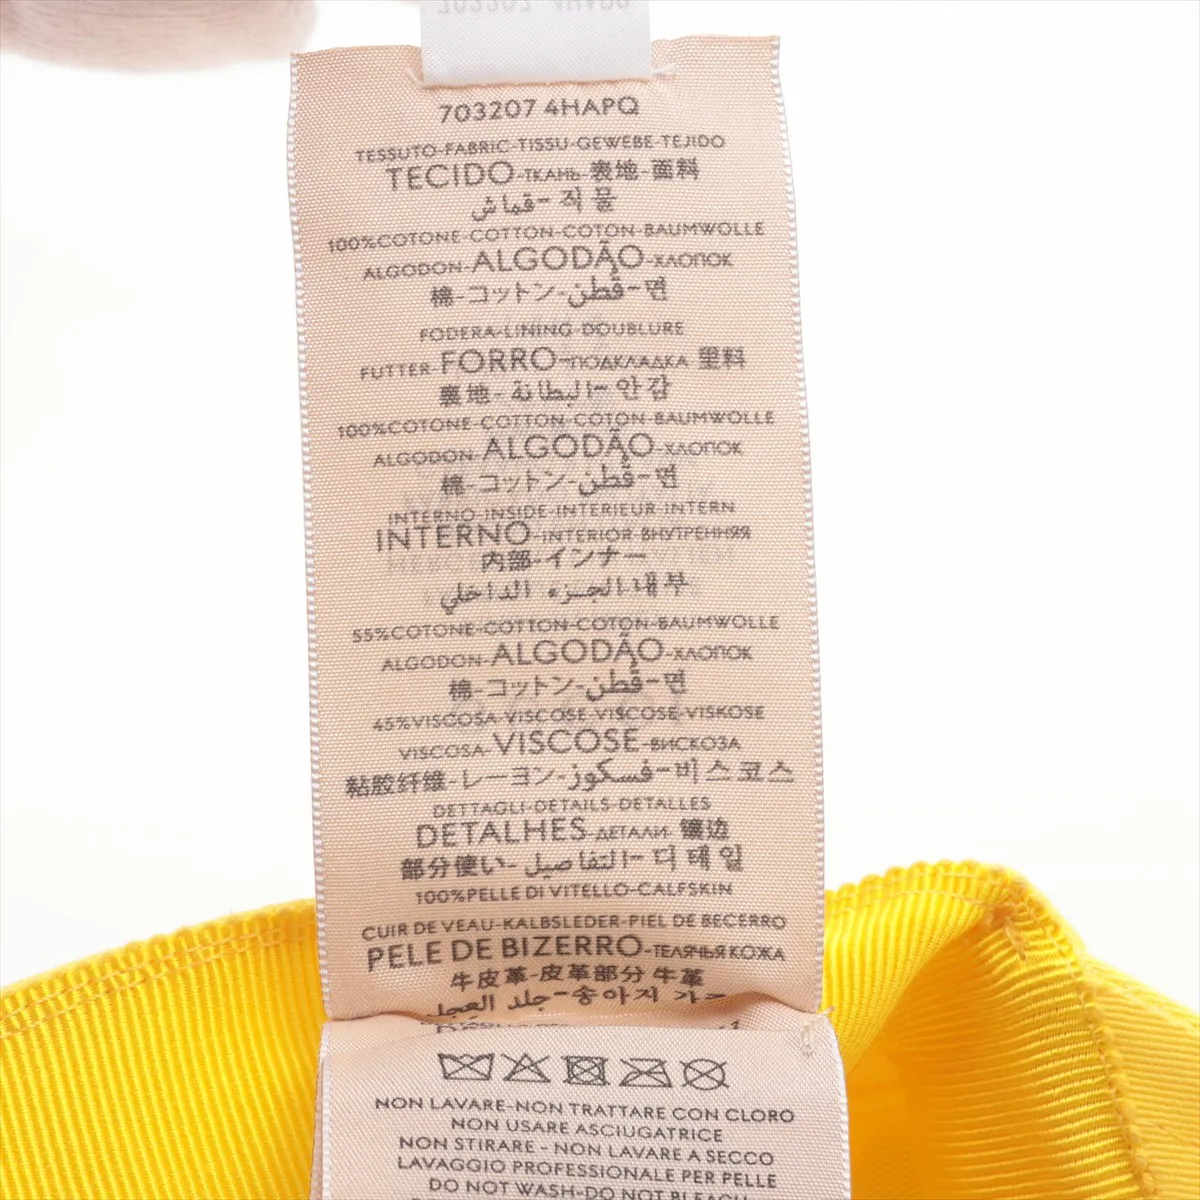 703207 4HAPQ
TESSUTO-FABRIC-TISSU-GEWEBE-TEJIDO
TECIDO-ТКАНЬ-表地-面料
قماش-직물
100%COTONE-COTTON-COTON-BAUMWOLLE
ALGODON-ALGODÃO-ХЛОПОК
棉-コットン-قطن-면
FODERA-LINING-DOUBLURE
FUTTER-FORRO-ПОДКЛАДКА 里料
裏地-البطانة-안감
100%COTONE-COTTON-COTON-BAUMWOLLE
ALGODON-ALGODÃO-ХЛОПОК
棉-コットン-قطن-면
INTERNO-INSIDE-INTERIEUR-INTERN
INTERNO-INTERIOR-ВНУТРЕННЯЯ
内部-インナー
내부-الجزء الداخلي
55%COTONE-COTTON-COTON-BAUMWOLLE
ALGODON-ALGODÃO-ХЛОПОК
棉-コットン-قطن-면
45%VISCOSA-VISCOSE-VISCOSE-VISKOSE
VISCOSA-VISCOSE-ВИСКОЗА
粘胶纤维-レーヨン-فسكوز-비스코스
DETTAGLI-DETAILS-DETALLES
DETALHES-ДЕТАЛИ-镶边
部分使い-التفاصيل-디테일
100%PELLE DI VITELLO-CALFSKIN
CUIR DE VEAU-KALBSLEDER-PIEL DE BECERRO
PELE DE BIZERRO-ТЕЛЯЧЬЯ КОЖА
牛皮革-皮革部分 牛革
جلد العجل-송아지
NON LAVARE-NON TRATTARE CON CLORO
NON USARE ASCIUGATRICE
NON STIRARE - NON LAVARE A SECCO
LAVAGGIO PROFESSIONALE PER PELLE
DO NOT WASH-DO NOT BLEACH